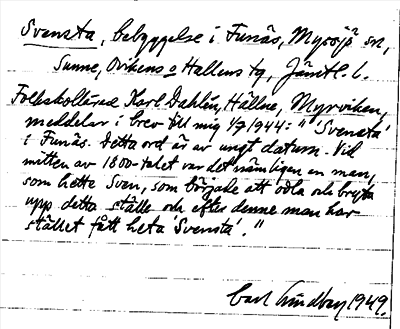 Svensta, bebyggelse i Funäs, Myssjö sn,
Sunne, Ovikens o Hallens tg, Jämtl. l.
Folkskollärare Karl Dahlén, Hällne, Myrviken,
meddelar i brev till mig 1/7 1944: "'Svensta'
i Funäs. Detta ord är av ungt datum. Vid
mitten av 1800-talet var det nämligen en man,
som hette Sven, som började att odla och bryta
upp detta ställe och efter denne man har
stället fått heta 'Svensta'."
Carl Lindberg 1949.